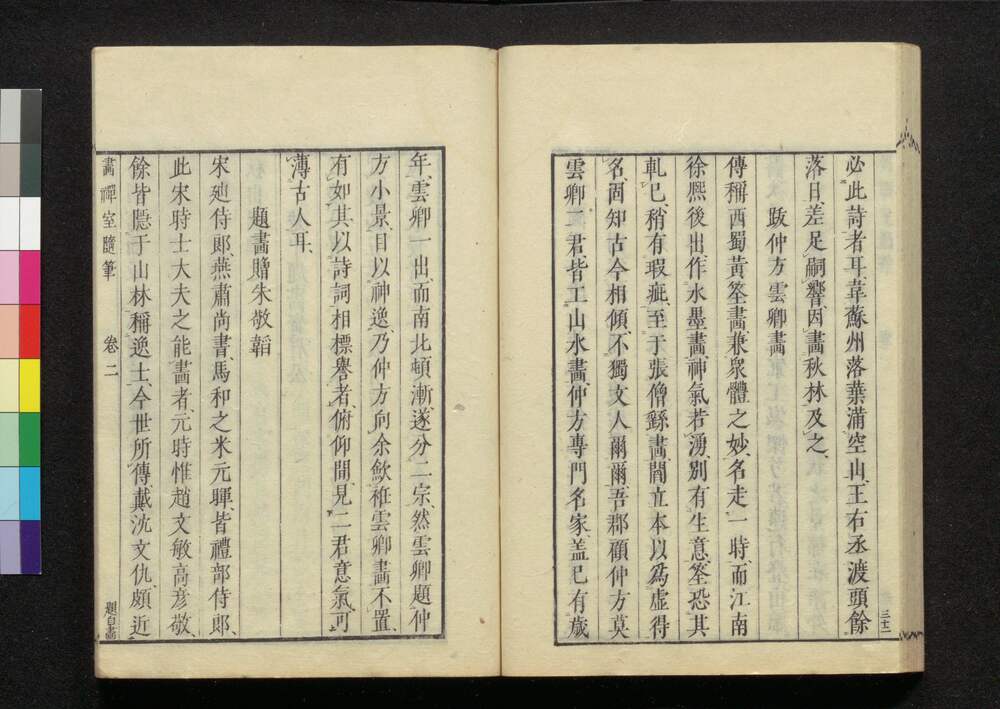 必此詩者耳韋蘇州落葉滿空山王右丞渡頭餘
落日差足嗣響因畫秋林及之
跋仲方雲卿畫
傳稱西蜀黃筌畫兼衆體之妙名走一時而江南
徐熙後出作水墨畫神氣若湧別有生意筌恐其
軋已稍有瑕疵至于張僧繇畫閻立本以爲虛得
名固知古今相傾不獨文人爾爾吾郡顧仲方莫
雲卿二君皆工山水畫仲方專門名家蓋已有歲
年雲卿一出而南北頓漸遂分二宗然雲卿題仲
方小景目以神逸乃仲方向余歛袵雲卿畫不置
有如其以詩詞相標譽者俯仰間見二君意氣可
薄古人耳
題畫贈朱敬韜
宋廸侍郎燕肅尚書馬和之米元暉皆禮部侍郎
此宋時士大夫之能畫者元時惟趙文敏高彥敬
餘皆隱于山林稱逸士今世所傳戴沈文仇頗近
畫禪室隨筆 卷二 題自畵